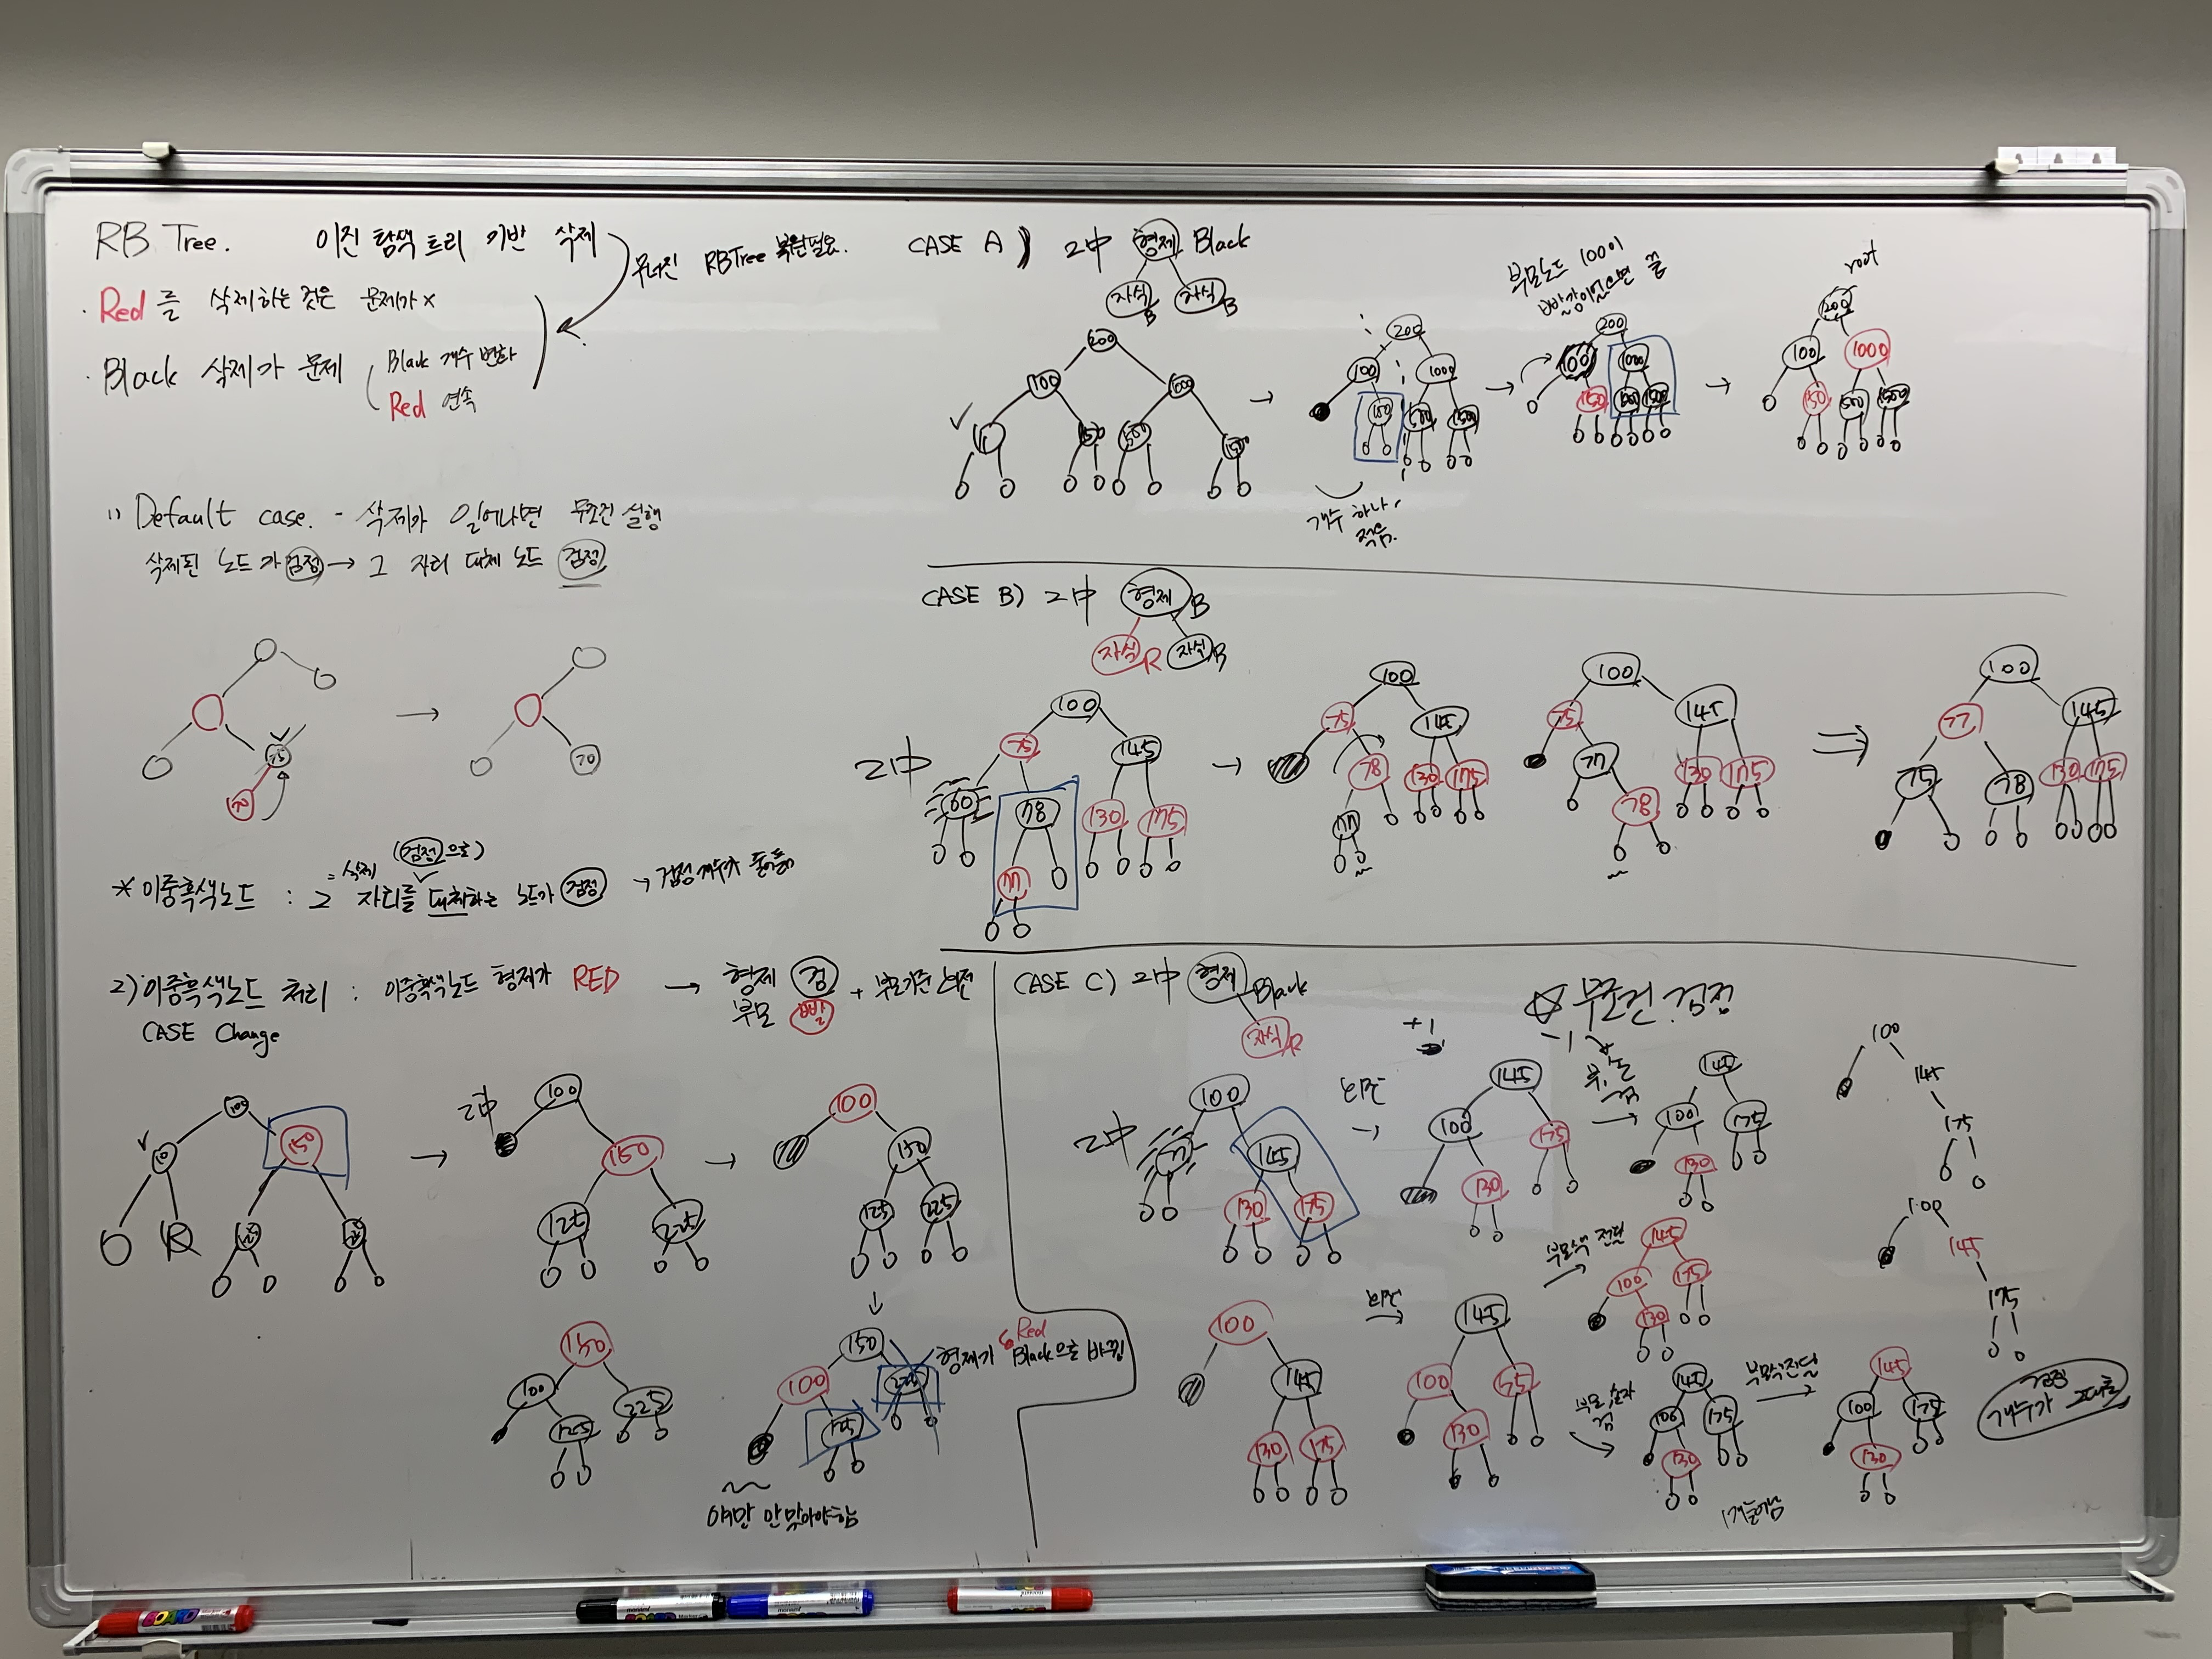 RB Tree. 이진 탐색 트리 기반 삭제
무너진 RBTree 복원필요.
· Red 를 삭제하는 것은 문제가 x
· Black 삭제가 문제
Black 개수 변화
Red 연속
1) Default case. - 삭제가 일어나면 무조건 실행
삭제된 노드가 검정 → 그 자리 대체 노드 검정
70
70
= 삭제 (검정으로)
* 이중흑색노드 : 그 자리를 대체하는 노드가 검정 → 검정 개수가
2) 이중흑색노드 처리 : 이중흑색노드 형제가 RED → 형제 검
부모 빨 + 부모기준 회전
CASE Change
100
150
이中 100
150
125 225
100
150
125 225
150
100 225
125
150
100 225
125
형제가 Red Black으로 바뀜
얘만 안 맞아야함
CASE A) 이中 형제 Black
자식 B 자식 B
200
100 1000
150 500
200
100 1000
150 500 1500
개수 하나
적음.
부모노드 100이
빨강이었으면 끝
200
100 1000
150 500 1500
root
200
100 1000
150 500 1500
CASE B) 이中 형제 B
자식 R 자식 B
이中
100
75 145
60 78 130 175
77
100
75 145
78 130 175
77
100
75 145
77 130 175
78
100
77 145
75 78 130 175
CASE C) 이中 형제 Black
자식 R
☆ 무조건 검정
+1
-1
이中
100
77 145
130 175
회전
145
100 175
130
145
100 175
130
100
145
175
100
145
130 175
회전
145
100 75
130
부모색 전달
145
100 175
130
145
100 175
130
1개 늘어남
부모색 전달
145
100 175
130
100
145
175
검정
개수가 그대로